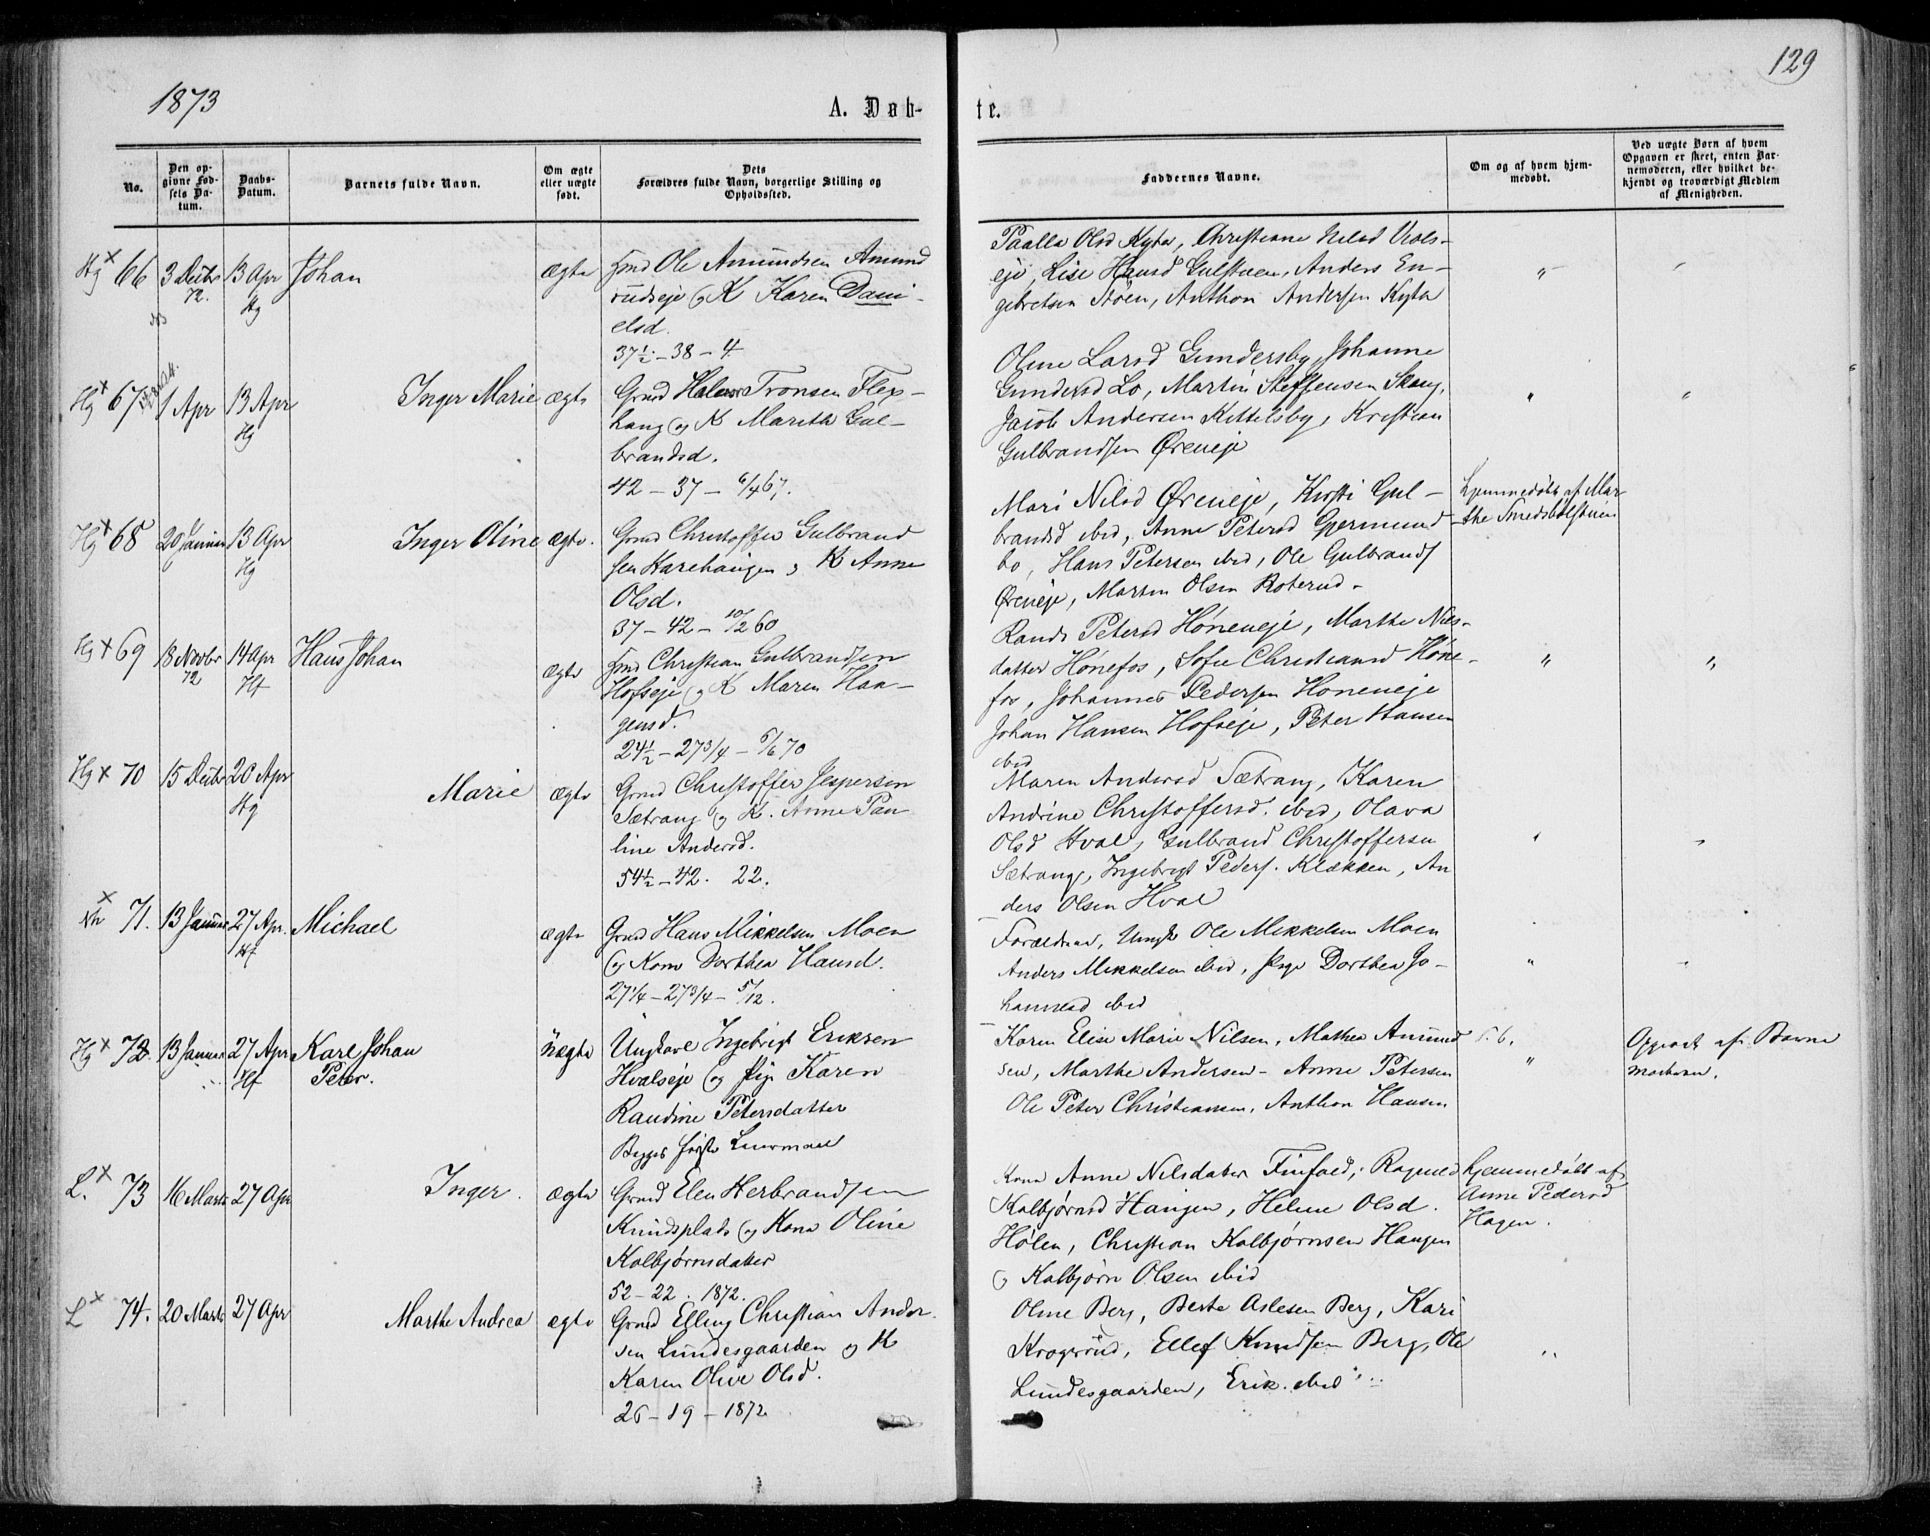 1873
129
A. Døb-
te.
No.
Den op-
givne Fød-
sels Da-
tum.
Daabs-
Datum.
Barnets fulde Navn.
Om ægte
eller uægte
født.
Dets
Forældres fulde Navn, borgerlige Stilling og
Opholdssted.
Faddernes Navne.
Om og af hvem hjem-
medøbt.
Ved uægte Børn af hvem
Opgaven er skeet, enten Bar-
nemoderen, eller hvilket be-
kjendt og troværdigt Medlem
af Menigheden.
Hg × 66 3 Decbr 13 Apr Johan ægte Hmd Ole Amundsen Amund
72. Hg rudseje og K Karen Dani-
elsd.
37½ – 38 – 4
Paalla Olsd Kyta, Christiane Nelsd Veols-
eje, Lise Hansd Gulstuen, Anders En-
gebretsen Støen, Anthon Andersen Kyta
Hg × 67 1 Apr 13 Apr Inger Marie ægte Gmd Halvor Tronsen Flex-
Hg haug og K Maritha Gul-
brandsd.
42 – 37 – 6/4 67.
Oline Larsd Gundersby, Johanne
Gundersd Lo, Martin Steffensen Skaug,
Jacob Andersen Kittelsby, Kristian
Gulbrandsen Øreneje
Hg × 68 20 Januar 13 Apr Inger Oline ægte. Gmd Christoffer Gulbrand
Hg sen Karehaugen og K Anne
Olsd.
37 – 42 – 10/2 60
Mari Nilsd Øreneje, Kirsti Gul-
brandsd ibid, Anne Petersd Gjermund-
bo, Hans Petersen ibid, Ole Gulbrands
Øreneje, Marten Olsen Roterud –
hjemmedøbt af Mar-
the Smedsbølstuen
Hg × 69 18 Novbr 14 Apr Hans Johan ægte Hmd Christian Gulbrandsen
72 Hf Hofseje og K Maren Haa-
gensd.
24½ – 27 3/4 – 6/6 70
Randi Petersd Høneneje, Marthe Niels-
datter Hønefos, Sofie Christiansd Høne-
fos, Johannes Pedersen Høneneje
Johan Hansen Hofseje, Peter Hansen
ibid
Hg × 70 15 Decbr 20 Apr Marie ægte Gmd Christoffer Jespersen
Hg Sætrang og K. Anne Pau
line Andersd.
54½ – 42. 22.
Maren Andersd Sætrang, Karen
Andrine Christoffersd. ibid, Olava
Olsd Hval, Gulbrand Christoffersen
Sætrang, Ingebrigt Peders. Klækken, An
ders Olsen Hval
× 71. 13 Januar 27 Apr. Michael ægte Gmd Hans Mikkelsen Moen
Hf og Kone Dorthea Hansd.
27¼ – 27 3/4 – 5/12.
Forældrene, Ungk Ole Mikkelsen Moen
Anders Mikkelsen ibid, Pige Dorthea Jo-
hannesd ibid
Hg × 72. 13 Januar 27 Apr Karl Johan uægte Ungkarl Ingebrigt Eriksen
Hf Peter. Hvalseje og Pige Karen
Randine Petersdatter
Begges første Leiermaal
Karen Elise Marie Nilsen, Mathea Amund
sen, Marthe Andersen – Anne Petersen
Ole Peter Christiansen, Anthon Hansen
Opgivet af Barne
moderen.
L. × 73 16 Marts 27 Apr Inger. ægte Gmd Elen Herbrandsen
Knudsplads og Kone Oline
Kolbjørnsdatter
52 – 22. 1872.
Kone Anne Nilsdatter Finsaed, Ragnild
Kolbjørnsd Haugen, Helene Olsd.
Hølen, Christian Kolbjørnsen Haugen
og Kolbjørn Olsen ibid
hjemmedøbt af
Anne Pedersd
Hagen.
L × 74. 20 Marts 27 Apr Marthe Andrea ægte Gmd Elling Christian Ander
sen Lundesgaarden og K
Karen Olive Olsd.
26 – 19 – 1872
Oline Berg, Berte Aslesen Berg, Kari
Krogsrud, Ellef Knudsen Berg, Ole
Lundesgaarden, Erik ibid